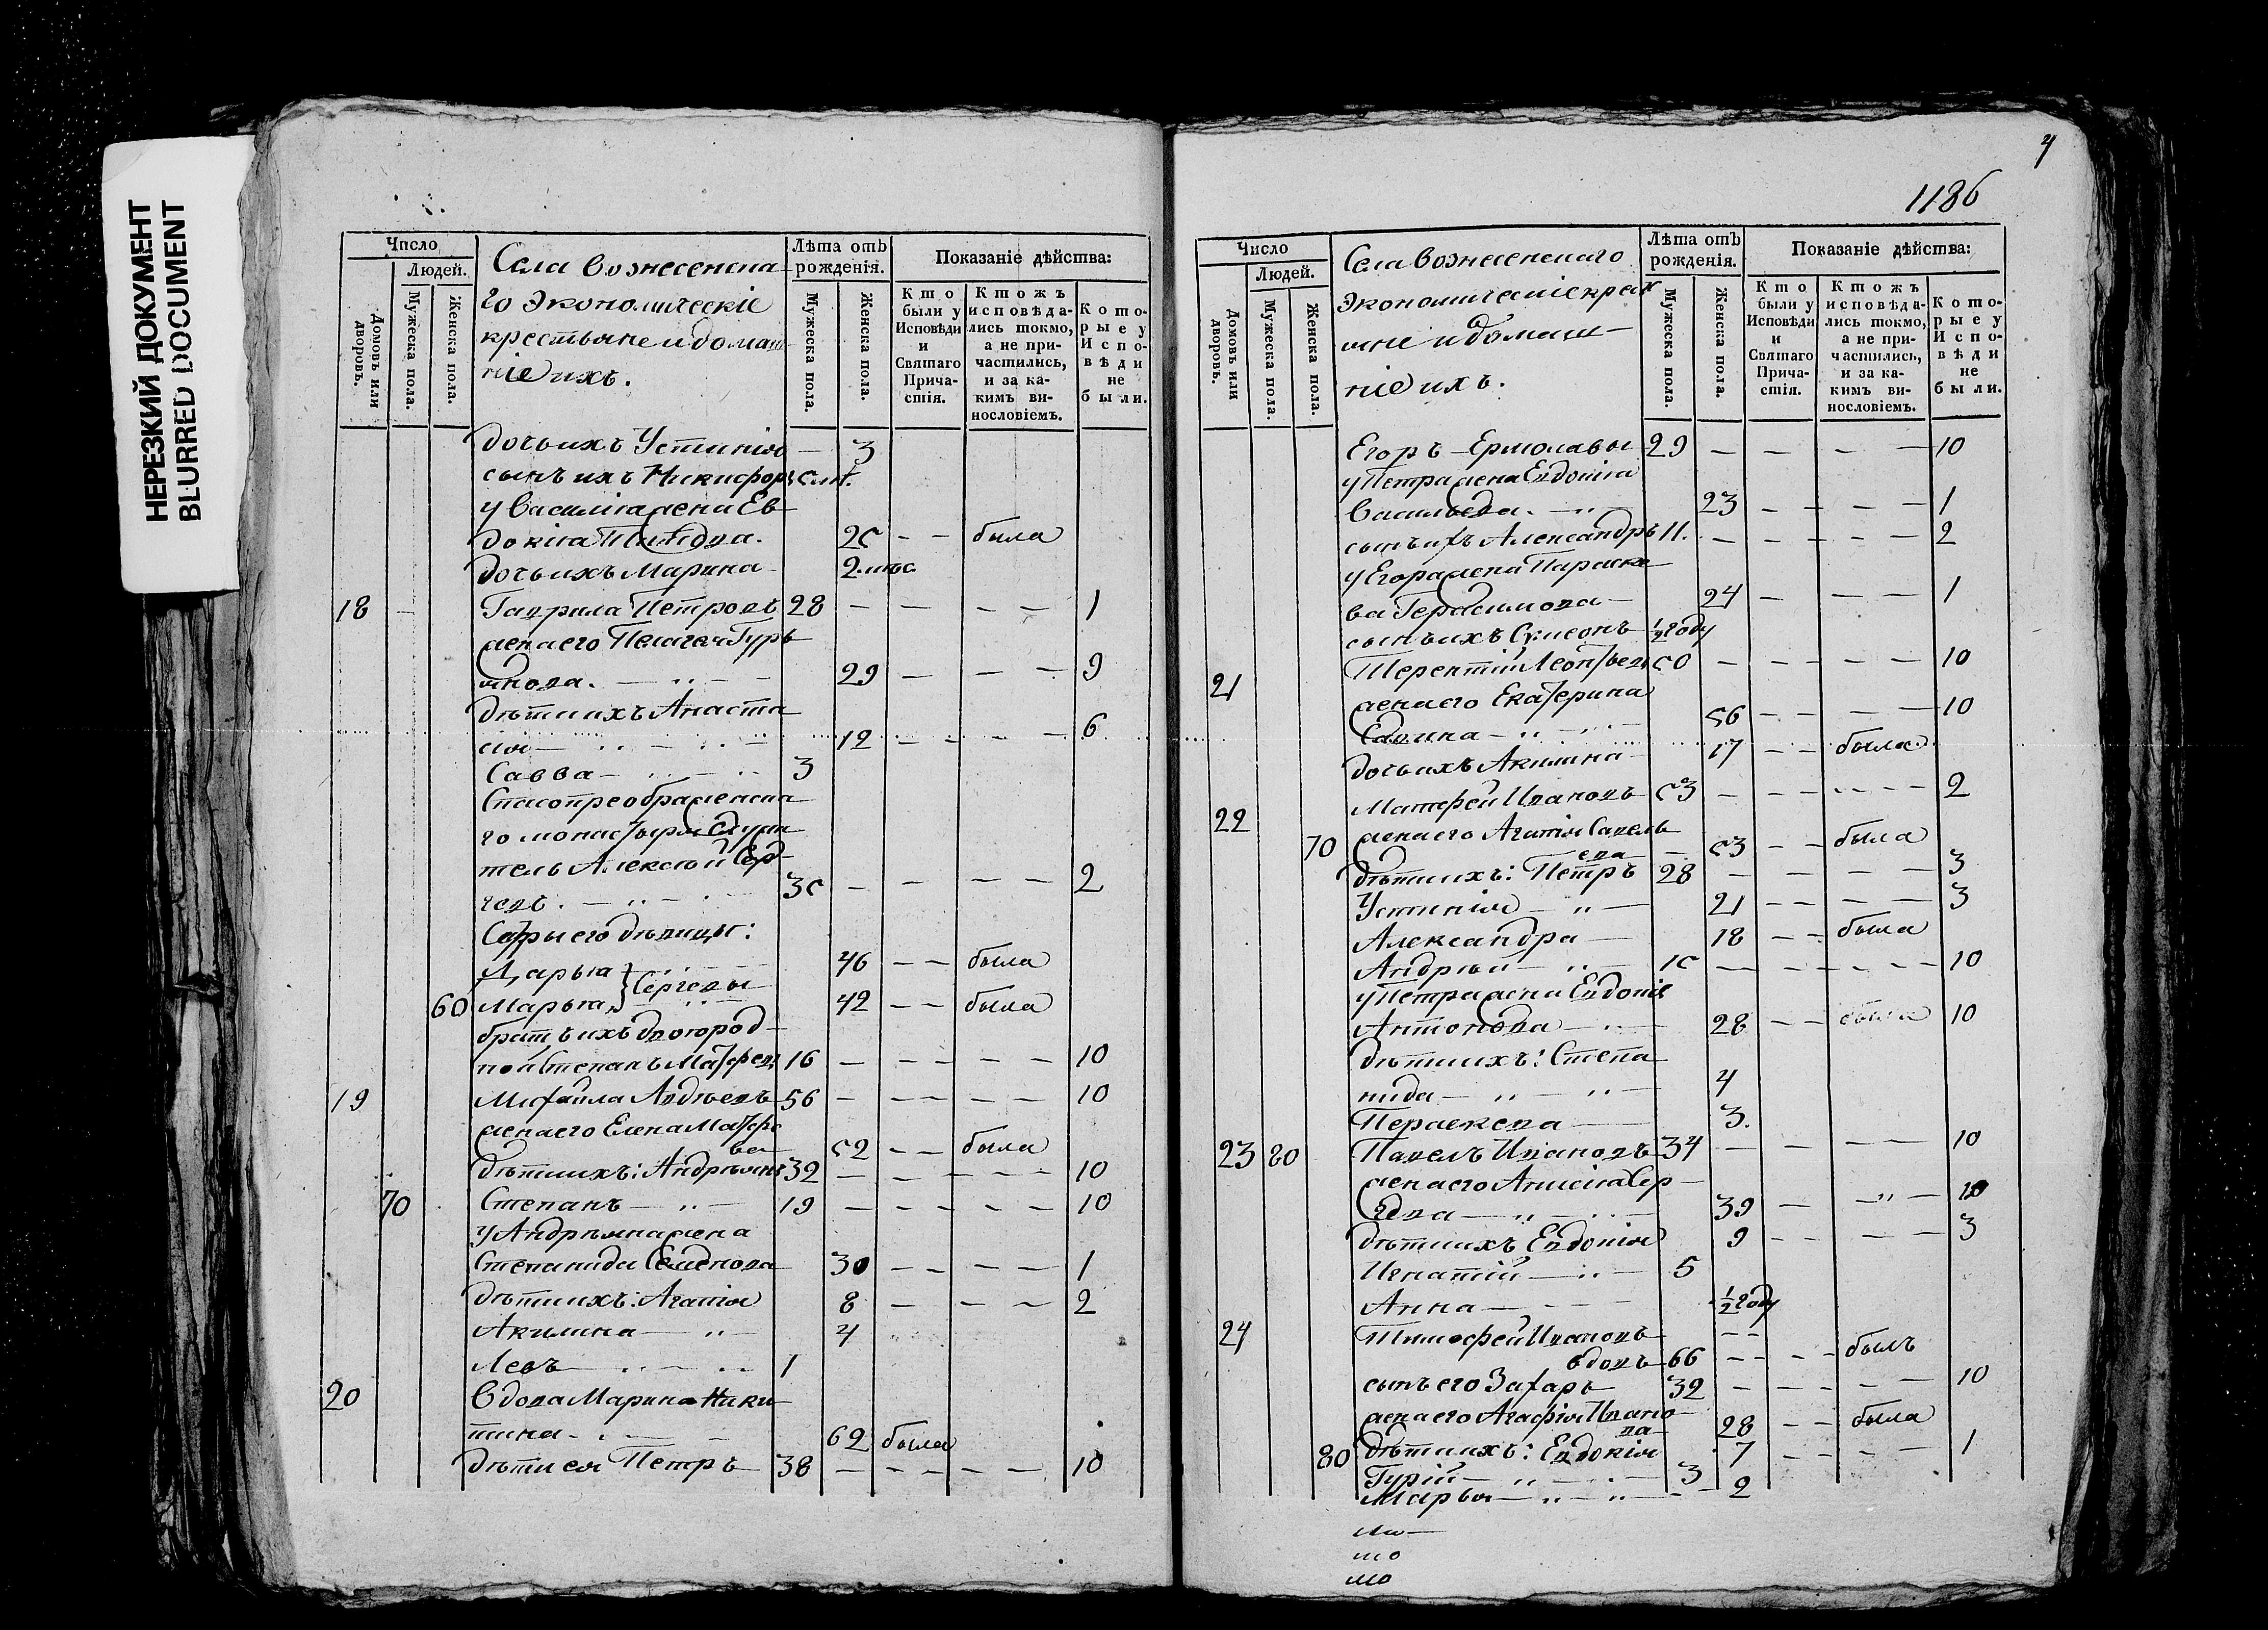 НЕРЕЗКИЙ ДОКУМЕНТ
BLURRED DOCUMENT
Число
Людей.
Домовъ или дворовъ.
Мужеска пола.
Женска пола.
Села Вознесенска
го Экономическіе
крестьяне и домаш
ніе ихъ.
Лѣта отъ рожденія.
Мужеска пола.
Женска пола.
Показаніе дѣйства:
Кто были у Исповѣди и Святаго Прича-стія.
Ктожъ исповѣда-лись токмо, а не при-частились, и за ка-кимъ ви-нословіемъ.
Кото-рые у Испо-вѣди не были.
дочь ихъ Устинія — 3
сынъ ихъ Никифоръ
у Василія жена Ев
докія 25 — — была
дочь ихъ Марина 2 мѣс.
18 — Гаврила Петровъ 28 — — — — 1
жена его Пелагея Гурь
янова. — 29 — — — 9
дѣти ихъ Анаста
сія — 12 — — — — 6
Савва — 3
Спасопреображенска
го монастыря служи
тель Алексѣй Сер
геевъ. — 35 — — — — 2
Сестры его дѣвицы:
Дарья } Сергеевы 46 — — была
60 Марья 42 — — была
братъ ихъ двоюрод
ной Степанъ Матфеевъ 16 — — — — 10
19 Михайла Авдѣевъ 56 — — — — 10
жена его Елена Матфее
ва 52 — — была
дѣти ихъ: Андреянъ 32 — — — — 10
70 Степанъ — 19 — — — — — 10
у Андреяна жена
Степанида Семенова 30 — — — — 1
дѣти ихъ: Агафія 8 — — — 2
Акилина — 4
Левъ — 1
20 Вдова Марина Ники
тина — 62 была
дѣти ея Петръ 38 — — — — — 10
4
1186
Число
Людей.
Домовъ или дворовъ.
Мужеска пола.
Женска пола.
Села Вознесенскаго
Экономическіе крест
яне и домаш
ніе ихъ.
Лѣта отъ рожденія.
Мужеска пола.
Женска пола.
Показаніе дѣйства:
Кто были у Исповѣди и Святаго Прича-стія.
Ктожъ исповѣда-лись токмо, а не при-частились, и за ка-кимъ ви-нословіемъ.
Кото-рые у Испо-вѣди не были.
Егоръ — Ермолаевы 29 — — — — 10
у Петра жена Евдокія
Васильева. — 23 — — — — 1
сынъ ихъ Александръ 11. — — — — — 2
у Егора жена Параске
ва Герасимова — 24 — — — 1
сынъ ихъ Сумеонъ ½ году
21 Терентій Леонтьевъ 50 — — — — — 10
жена его Екатерина
Саввина — 56 — — — — 10
дочь ихъ Акилина 17 — — была
22 Матфей Ивановъ 53 — — — 2
70 жена его Агафія Савель
ева — 53 — — была
дѣти ихъ: Петръ 28 — — — — 3
Устинія — 21 — — — — 3
Александра — 18 — — была
Андрѣй — 15 — — — — — 10
у Петра жена Евдокія
Антонова — 28 — — была 10
дѣти ихъ: Степа
нида — 4
Перасксева — 3.
23 80 Павелъ Ивановъ 34 — — — — 10
жена его Анисія Сер
геева — 39 — — 10
дѣти ихъ Евдокія 9 — — — — 3
Игнатій — 5
Анна — ½ году
24 Тимофей Ивановъ — —
вдовъ 66 — — — былъ
сынъ его Захаръ 32 — — — — 10
жена его Агафія Ивано
ва 28 — — была
80 дѣти ихъ: Евдокія 7 — — — — 1
Гурій — 3
Марья — 2